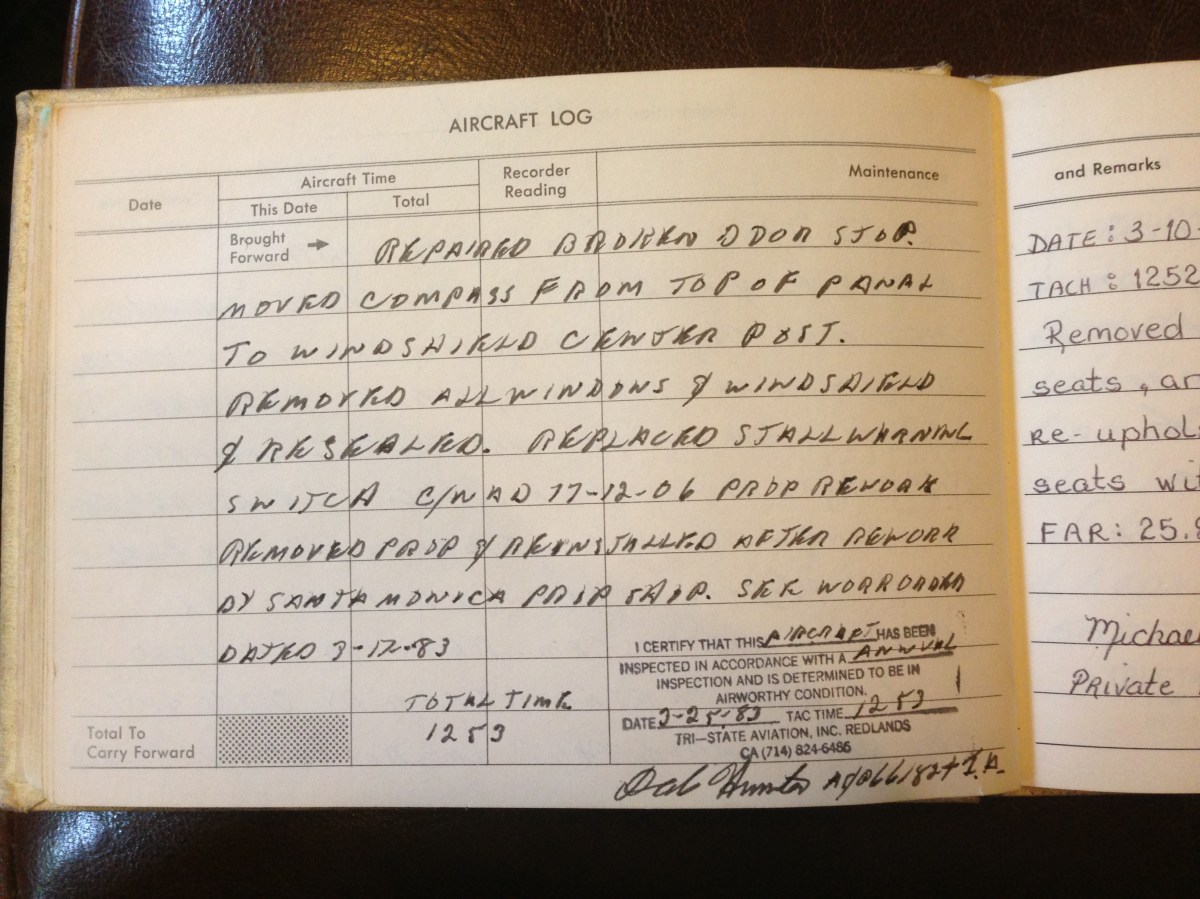 AIRCRAFT LOG
Date
Aircraft Time
This Date
Total
Recorder
Reading
Maintenance
Brought
Forward
REPAIRED BROKEN DOOR STOP.
MOVED COMPASS FROM TOP OF PANAL
TO WINDSHIELD CENTER POST.
REMOVED ALL WINDOWS & WINDSHIELD
& RESEALED. REPLACED STALL WARNING
SWITCH C/W AD 77-12-06 PROP REWORK
REMOVED PROP & REINSTALLED AFTER REWORK
BY SANTA MONICA PROP SHOP. SEE WORKORDER
DATED 3-17-83
TOTAL TIME
1253
Total To
Carry Forward
I CERTIFY THAT THIS AIRCRAFT HAS BEEN
INSPECTED IN ACCORDANCE WITH A ANNUAL
INSPECTION AND IS DETERMINED TO BE IN
AIRWORTHY CONDITION.
DATE 3-25-83 TAC TIME 1253
TRI-STATE AVIATION, INC. REDLANDS
CA (714) 824-6486
Hunter I.A.
and Remarks
DATE: 3-10-
TACH: 1252
Removed
seats, an
re-uphols
seats wit
FAR: 25.8
Michael
Private